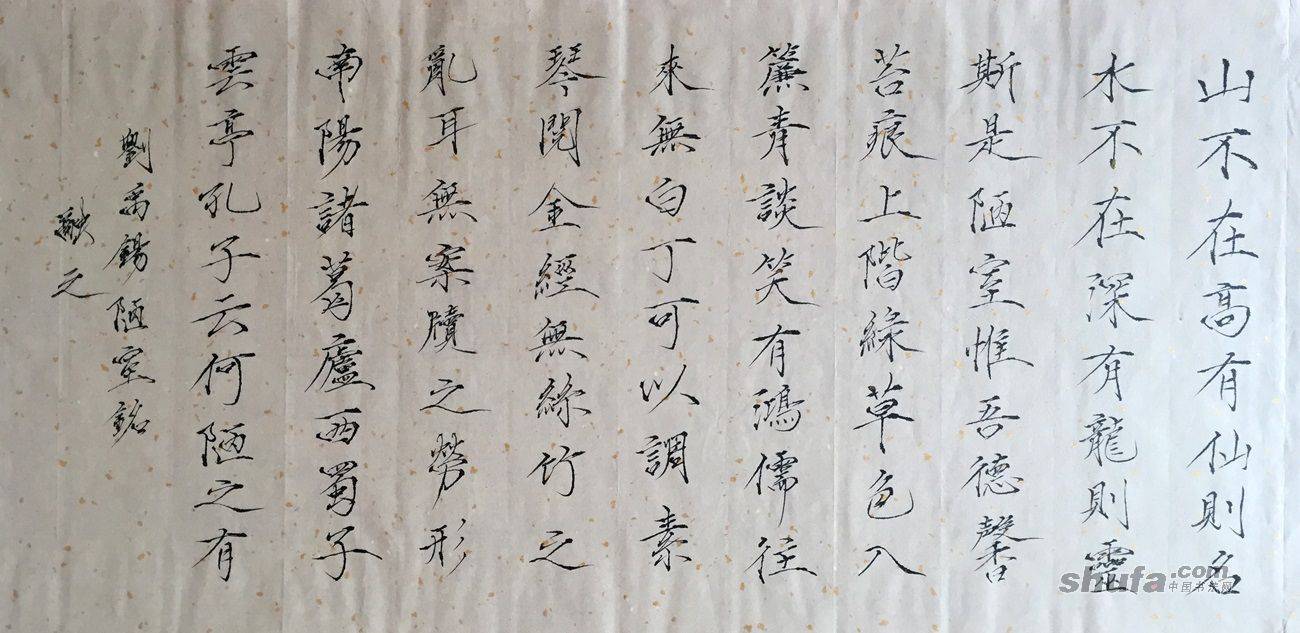 山不在高有仙則名
水不在深有龍則靈
斯是陋室惟吾德馨
苔痕上階綠草色入
簾青談笑有鴻儒往
來無白丁可以調素
琴閱金經無絲竹之
亂耳無案牘之勞形
南陽諸葛廬西蜀子
雲亭孔子云何陋之有
劉禹錫陋室銘
之
shufa.com
中国书法网